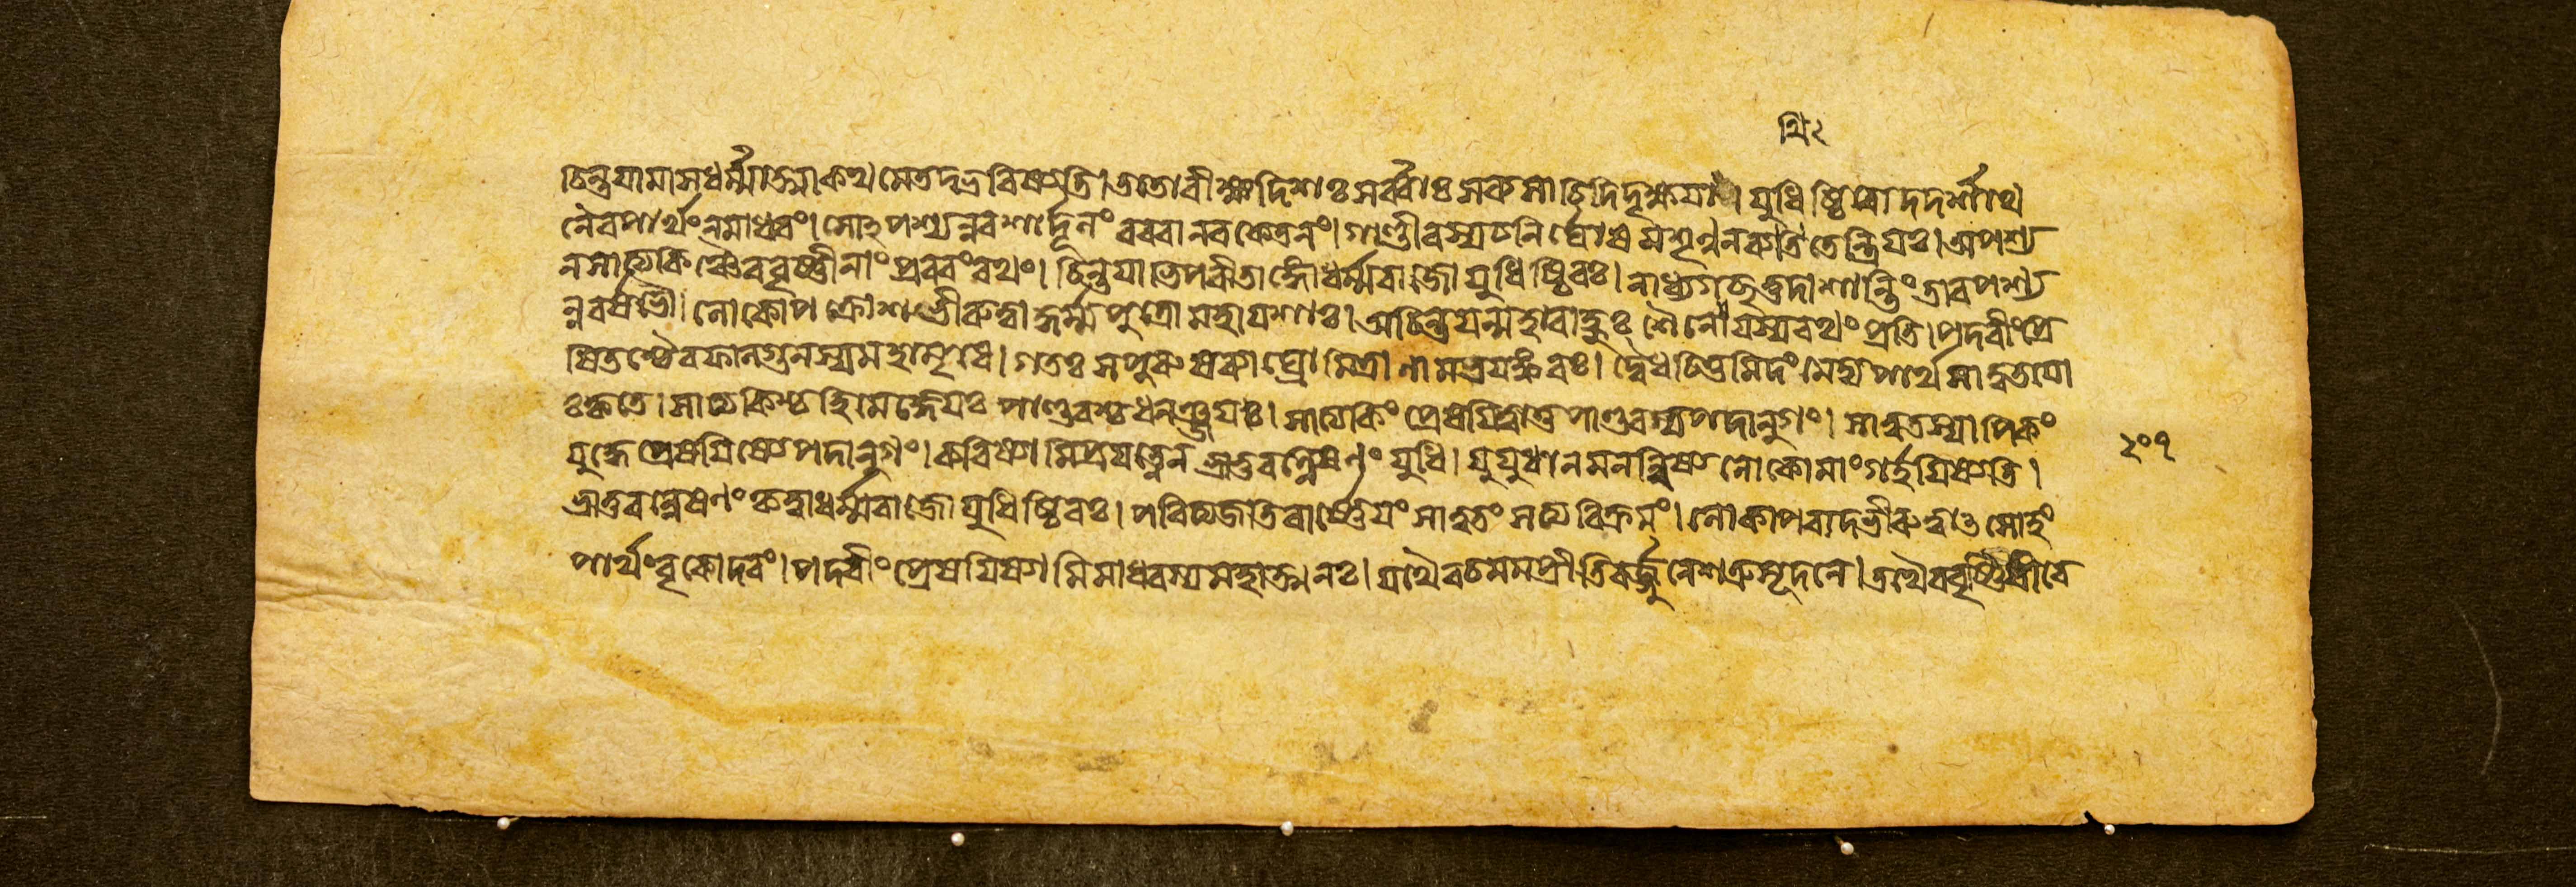 থি২
চিন্তয়ামাসধর্ম্মাত্মাকথমেতদ্ভবিষ্যতি। ততোবীক্ষ্যদিশঃসর্ব্বাঃসব্যসাচিদিদৃক্ষয়া। যুধিষ্ঠিরোদদর্শাথ
নৈবপার্থংনমাধবং। সোঽপশ্যন্নরশার্দূলং বরবানরকেতনং। গাণ্ডীবস্যচনির্ঘোষমশৃণ্বন্ অপশ্য
নসাত্যকিঞ্চৈববৃষ্ণীনাং প্রবরংরথং। চিন্তয়াভিপরীতাঙ্গোধর্ম্মরাজো যুধিষ্ঠিরঃ। নাধ্যগচ্ছত্তদাশান্তিং তাবপশ্য
ন্নরর্ষভৌ। লোকোপক্রোশভীরুত্বাদ্ধর্ম্মপুত্রো মহাযশাঃ। অচিন্তয়ন্মহাবাহুঃ শৈনেয়স্যরথং প্রতি। পদবীংপ্রে
ষিতশ্চৈবফালগুনস্যমহামৃধে। গতঃ সপুরুষব্যাঘ্রো মিত্রাণামভয়ঙ্করঃ। দ্বৈধচিত্তমিদং মেদ্য
সাত্যকিশ্চহিমেজ্ঞেয়ঃ পাণ্ডবশ্চধনঞ্জয়ঃ। সাত্যকিং প্রেষয়িত্বাতুপাণ্ডবস্যপদানুগং। সাত্বতস্যাপিকং
যুদ্ধে প্রেষয়িষ্যেপদানুগং। করিষ্যামিপ্রযত্নেন ভ্রাতুরন্বেষণং যুধি। যুযুধানমনন্বিষ্য লোকোমাংগর্হয়িষ্যতি।
ভ্রাতুরন্বেষণং কৃত্বাধর্ম্মরাজো যুধিষ্ঠিরঃ। পরিত্যজতিবার্ষ্ণেয়ং সাত্বতং সত্যবিক্রমং। লোকাপবাদভীরুত্বাৎ সোহং
পার্থংবৃকোদরং। পদবীং প্রেষয়িষ্যামিমাধবস্যমহাত্মনঃ। যথৈবচমমপ্রীতিরর্জ্জুনেশত্রুসূদনে। তথৈববৃষ্ণিবীরে
২০৭